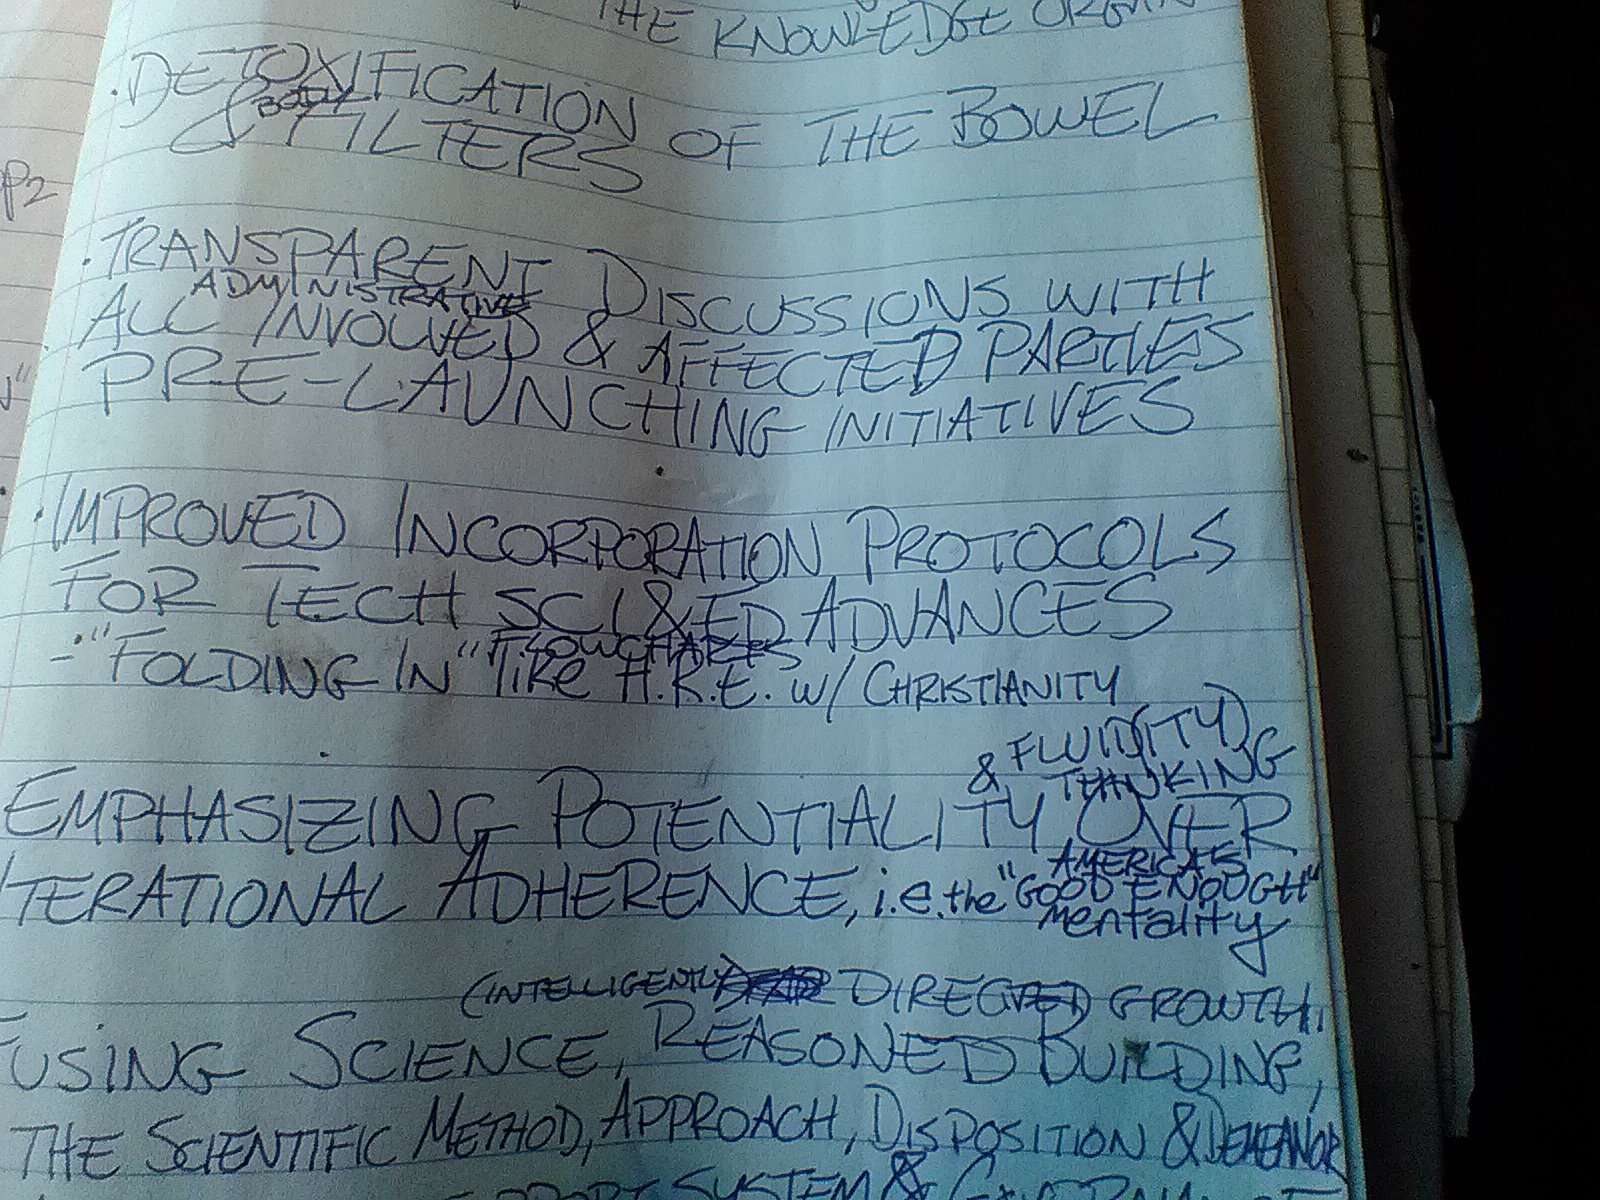 THE KNOWLEDGE ORGAN
· DETOXIFICATION OF THE BOWEL
BODY
& FILTERS
P2
· TRANSPARENT DISCUSSIONS WITH
ADMINISTRATIVE
ALL INVOLVED & AFFECTED PARTIES
PRE-LAUNCHING INITIATIVES
· IMPROVED INCORPORATION PROTOCOLS
FOR TECH SCI & ED ADVANCES
FLOWCHARTS
- "FOLDING IN" like H.R.E. w/ CHRISTIANITY
& FLUID(ITY)
THINKING
EMPHASIZING POTENTIALITY OVER
AMERICA'S
ITERATIONAL ADHERENCE, i.e. the "GOOD ENOUGH"
mentality
(INTELLIGENTLY DIRECTED GROWTH,
FUSING SCIENCE, REASONED BUILDING,
THE SCIENTIFIC METHOD, APPROACH, DISPOSITION & DEMEANOR
SYSTEM &